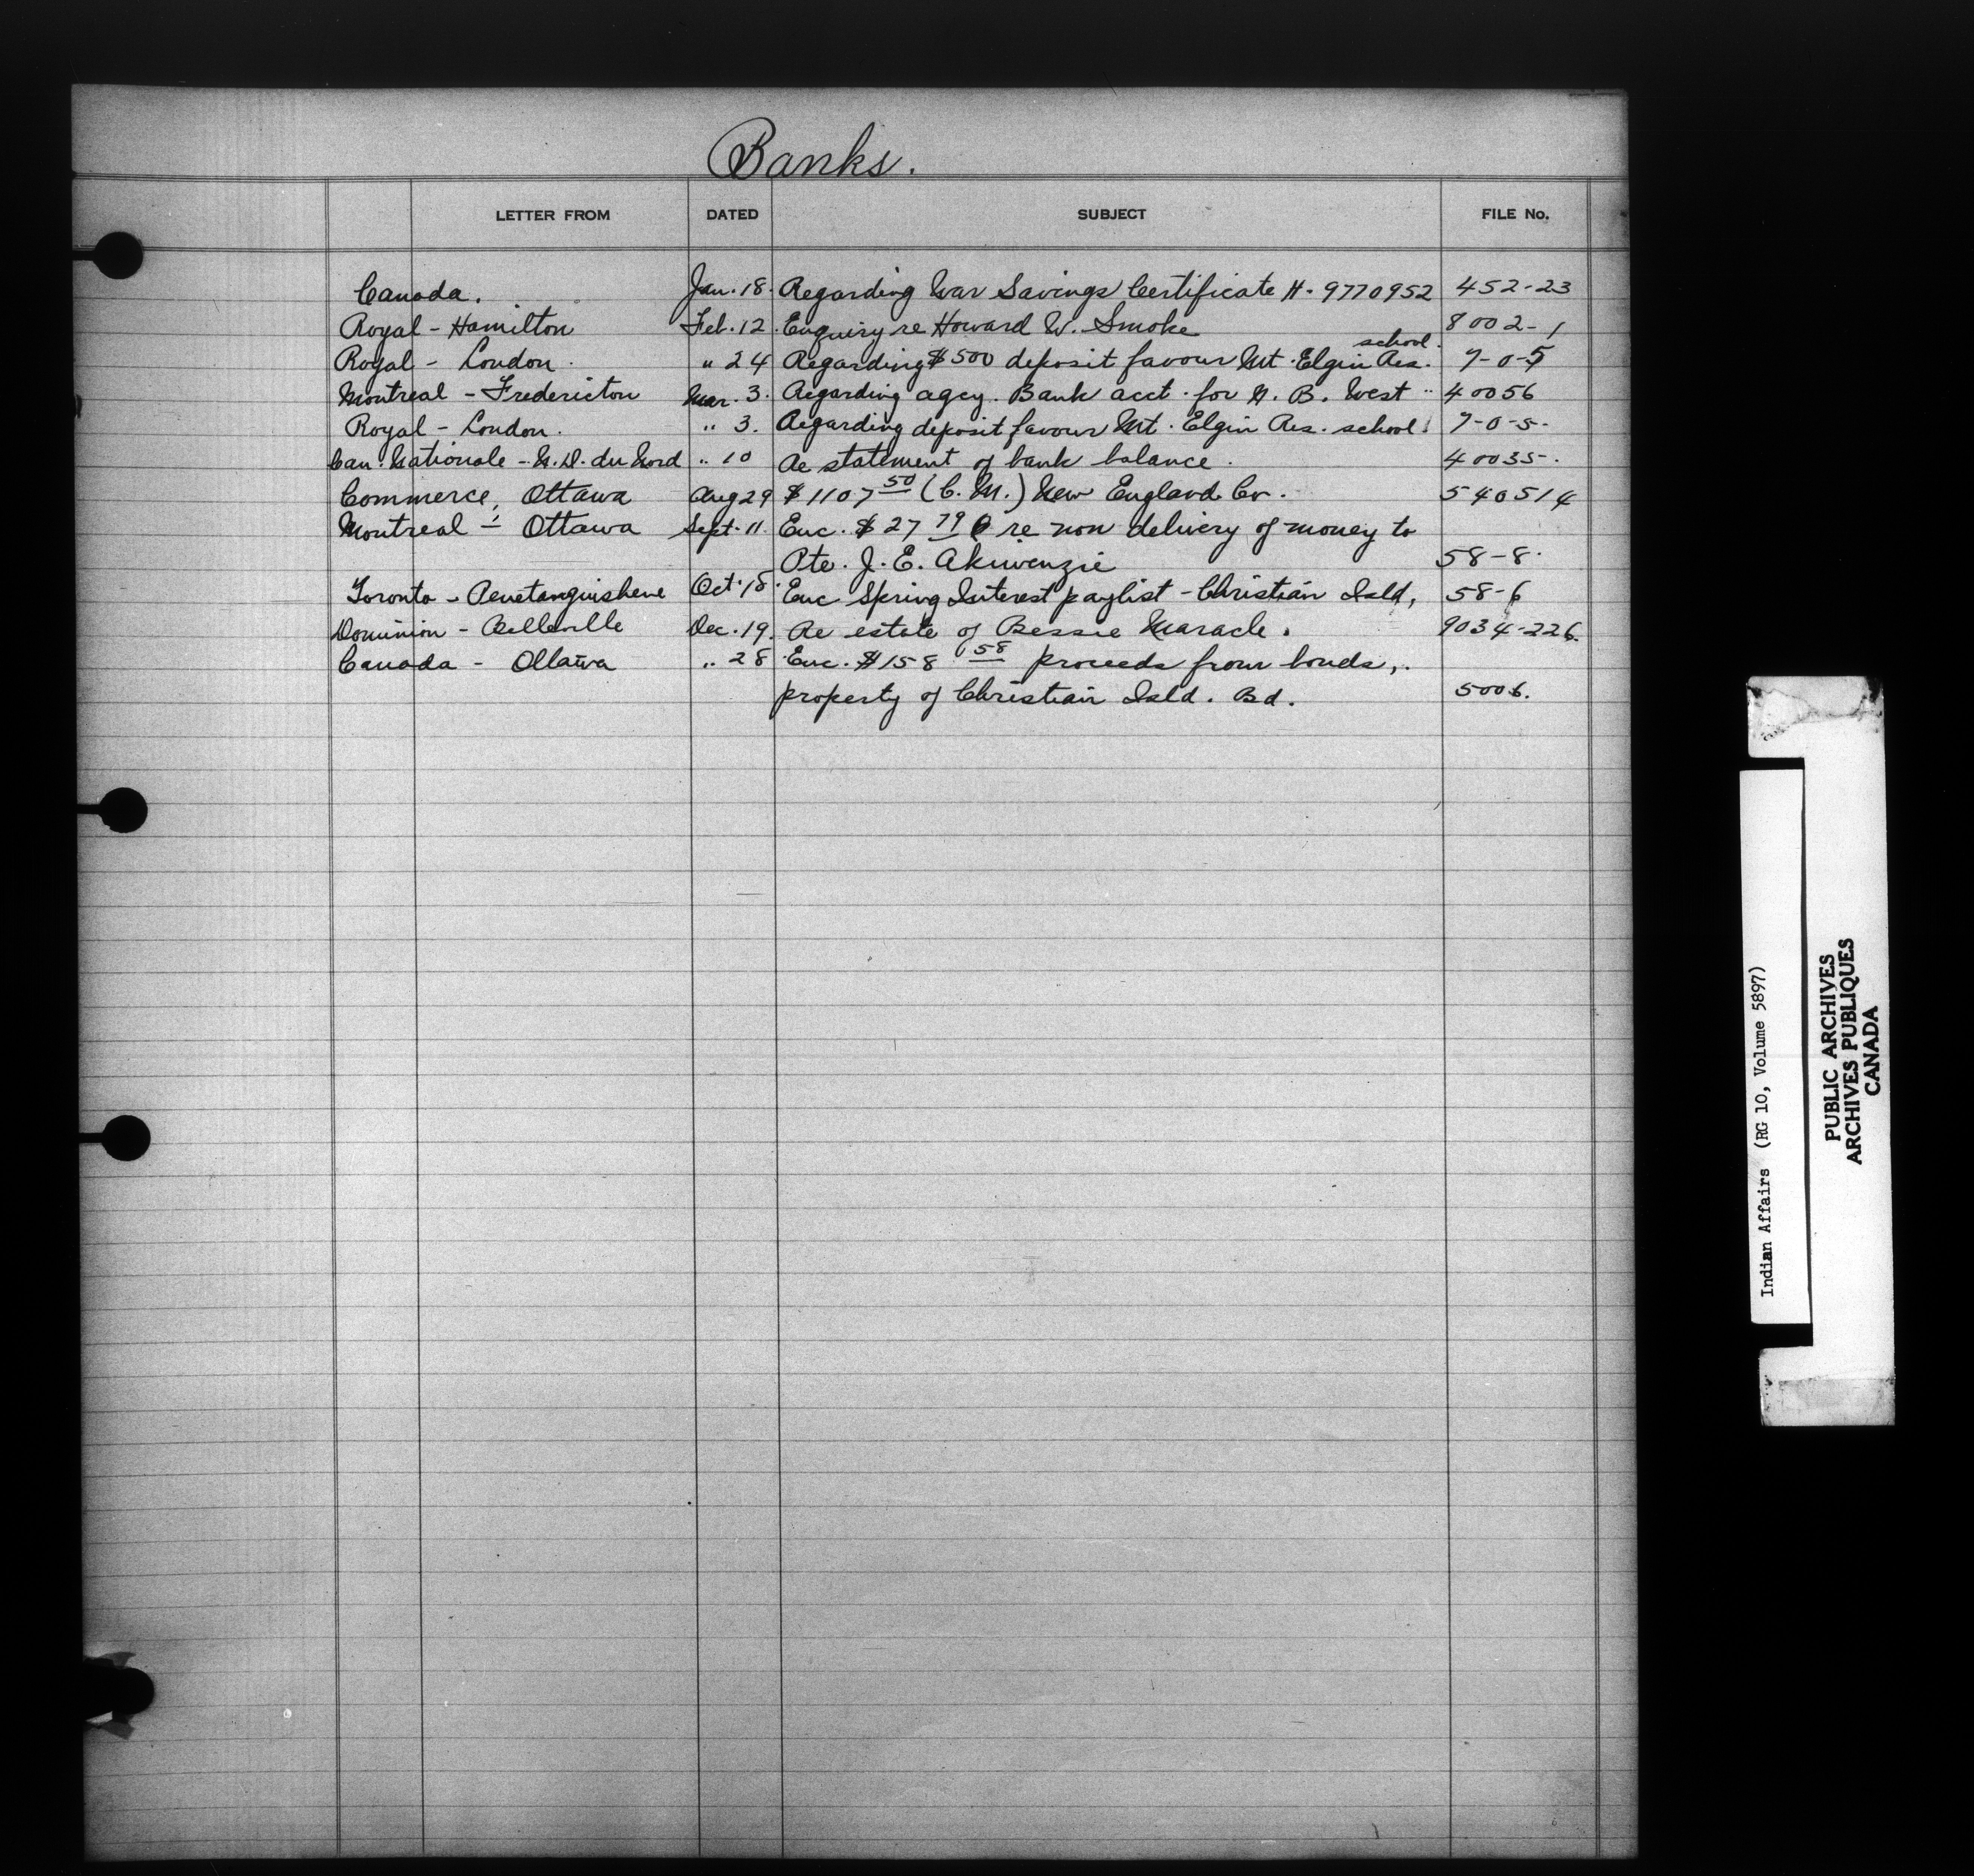 Banks.
LETTER FROM DATED SUBJECT FILE No.
Canada. Jan. 18. Regarding War Savings Certificate H-9770952 452-23
Royal - Hamilton Feb. 12. Enquiry re Howard W. Smoke 8002-1
Royal - London. " 24 Regarding $500 deposit favour Mt. Elgin Res. school. 7-0-5
Montreal - Fredericton Mar. 3. Regarding agcy. Bank acct. for N. B. West 40056
Royal - London. " 3. Regarding deposit favour Mt. Elgin Res. school. 7-0-5.
Can. Nationale - N. D. du Nord " 10 Re statement of bank balance. 40035.
Commerce, Ottawa Aug 29 $1107 50 (C. M.) New England Co. 540514
Montreal - Ottawa Sept. 11. Enc. $27 79 re non delivery of money to
Pte. J. E. Akiwenzie 58-8.
Toronto - Penetanguishene Oct. 18. Enc Spring Interest paylist - Christian Isld, 58-6
Dominion - Belleville Dec. 19. Re estate of Bessie Maracle. 9034-226.
Canada - Ottawa " 28 Enc. $158 58 proceeds from bonds,
property of Christian Isld. Bd. 5006.
Indian Affairs (RG 10, Volume 5897)
PUBLIC ARCHIVES
ARCHIVES PUBLIQUES
CANADA